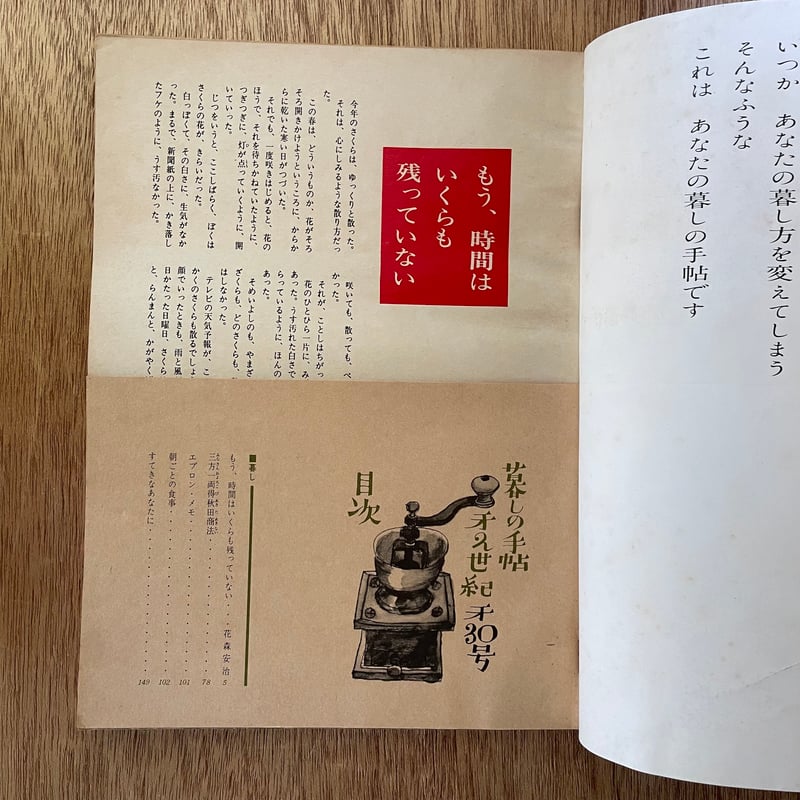 いつか あなたの暮し方を変えてしまう
そんなふうな
これは あなたの暮しの手帖です
もう、時間は
いくらも
残っていない
今年のさくらは、ゆっくりと散った。
それは、心にしみるような散り方だっ
た。
この春は、どういうものか、花がそろ
そろ開きかけようというころに、からか
らに乾いた寒い日がつづいた。
それでも、一度咲きはじめると、花の
ほうで、それを待ちかねていたように、
つぎつぎに、灯が点っていくように、開
いていった。
じつをいうと、ここしばらく、ぼくは
さくらの花が、きらいだった。
白っぽくて、その白さに、生気がなか
った。まるで、新聞紙の上に、かき落し
たフケのように、うす汚なかった。
咲いても、散っても、
かった。
それが、ことしはちがっ
花のひとひら一片に、
あった。うす汚れた白さで
らっているように、ほんの
あった。
そめいよしのも、やまざ
ざくらも、どのさくらも、
はしなかった。
テレビの天気予報が、
かくのさくらも散るでしょ
顔でいったときも、雨と風
日かたった日曜日、さくら
と、らんまんと、かがやく
暮しの手帖
才2世紀
才30号
目次
■暮し
もう、時間はいくらも残っていない・・・・花森安治 5
三方一両得秋田商法 78
エプロン・メモ 101
朝ごとの食事 102
すてきなあなたに 149